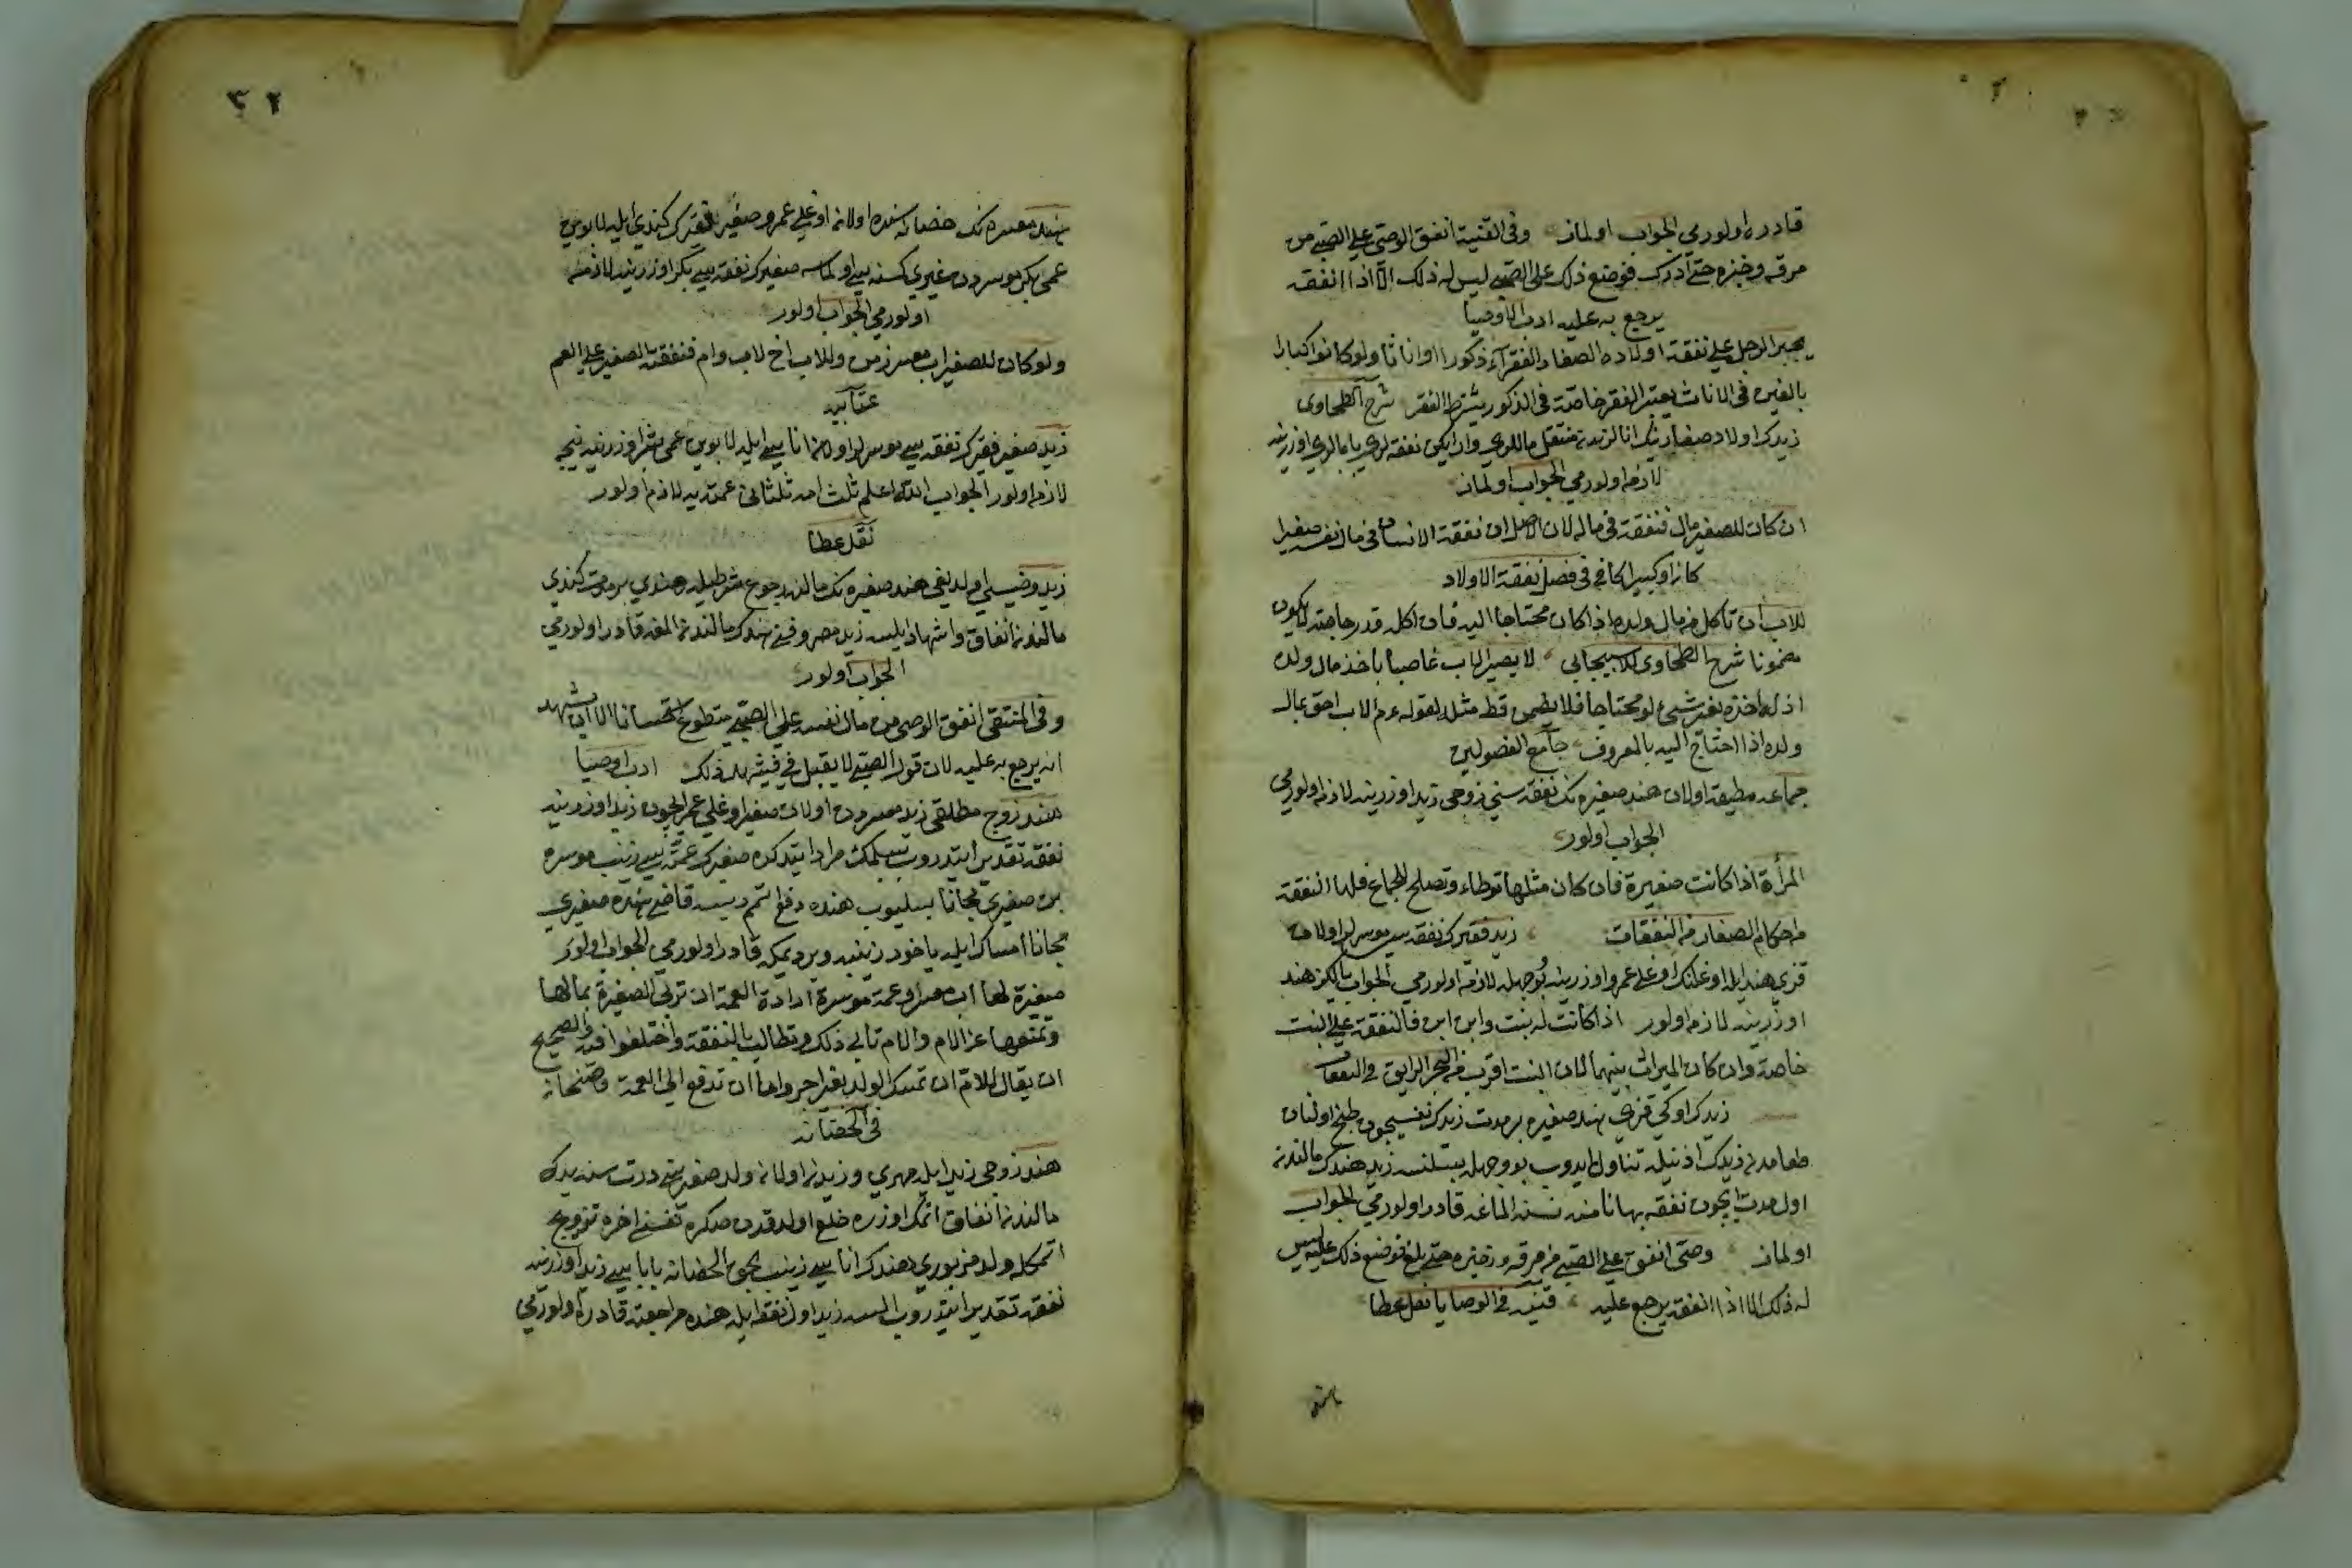 قادره اولورمى الجواب اولماز وفى القنية انفق الوصى على الصبى من
مرقه وخبزه حتى ادرك فوضع ذلك على الصبى ليس له ذلك الا اذا انفقه
يرجع به عليه ادب الاوصيا
يجبر الرجل على نفقة اولاده الصغار الفقرآء ذكورا او اناثا ولو كانوا كبارا
بالغين فى الاناث يعتبر الفقر خاصة فى الذكور يشترط الفقر شرح الطحاوى
زيدك اولاد صغارينك انالرندن منتقل ماللرى وار ايكن نفقه لرى بابالرى اوزرينه
لازمه اولورمى الجواب اولماز
ان كان للصغير مال فنفقته فى ماله لان الاصل ان نفقة الانسان فى مال نفسه صغيرا
كان او كبيرا كافى فى فصل نفقة الاولاد
للاب ان تأكل من مال ولده اذا كان محتاجا اليه فان اكل قدر حاجته لا يكون
مضمونا شرح الطحاوى للاسبيجابى لا يصير الاب غاصبا بأخذ مال ولده
اذ له اخذه بغير شيئ لو محتاجا فلا يضمن قط مثله لقوله عم الاب احق بمال
ولده اذا احتاج اليه بالمعروف جامع الفصولين
جماعه مطيقه اولان هند صغيره نك نفقه سى زوجى زيد اوزرينه لازمه اولورمى
الجواب اولور
المرأة اذا كانت صغيرة فان كان مثلها توطاء وتصلح للجماع فلها النفقة
من احكام الصغار من النفقات زيد فقيرك نفقه سى موسرلر اولان
قزى هند ايله اوغلنك اوغلى عمرو اوزرينه بو وجهله لازمه اولورمى الجواب يالكز هند
اوزرينه لازم اولور اذا كانت له بنت وابن ابن فالنفقة على البنت
خاصة وان كان الميراث بينهما لان البنت اقرب من البحر الرايق فى النفقات
زيدك اوكى قزى هند صغيره بر مدت زيدك نفسيچون طبخ اولنان
طعامدن زيدك اذنيله تناول ايدوب بو وجهله بسلنسه زيد هندك مالندن
اول مدت ايچون نفقه بهانا منه نسنه المغه قادر اولورمى الجواب
اولماز وصى انفق على الصبى من مرقه وخبزه حتى بلغ فوضع ذلك عليه ليس
له ذلك الا اذا انفقه يرجع عليه قنيه فى الوصايا نقل عطا
هند معسره نك حضانه سنده اولان اوغلى عمرو صغير فقيرك كندى ايله لابوين
عمى بكر موسردن غيرى كسنه سى اولماسه صغيرك نفقه سى بكر اوزرينه لازمه
اولورمى الجواب اولور
ولو كان للصغير اب معسر زمن وللاب اخ لاب وام فنفقة الصغير على العم
عتابيه
زيد صغير فقيرك نفقه سى موسرلر اولان اناسى ايله لابوين عمى بشر اوزرينه نيجه
لازم اولور الجواب الله اعلم ثلث امه ثلثانى عمته لازم اولور
نقل عطا
زيد وصيسى اولديغى هند صغيره نك مالنه رجوع شرطيله هندى بر مدت كندى
مالندن انفاق واشهاد ايلسه زيد مصروفنى هندك مالندن المغه قادر اولورمى
الجواب اولور
وفى المنتقى انفق الوصى من مال نفسه على الصبى متطوع استحسانا الا ان يشهد
انه يرجع به عليه لان قول الصبى لا يقبل فى فيشهد ذلك ادب اوصيا
هند زوج مطلقى زيد معسردن اولان صغير اوغلى عمر ايچون زيد اوزرينه
نفقه تقدير ايتدروب بسلمك مراد ايتدكده صغيرك عمه سى زينب موسره
بن صغيرى مجانا بسليوب هنده دفع اتم ديسه قاضى هنده صغيرى
مجانا امساك ايله ياخود زينبه وير ديمكه قادر اولورمى الجواب اولور
صغيرة لها اب معسر وعمة موسرة ارادة العمة ان تربى الصغيرة بمالها
وتمنعها عن الام والام تأبى ذلك وتطالب بالنفقة واختلفوا فيه والصحيح
ان يقال للام ان تمسك الولد بغير اجر واما ان تدفع الى العمة
فى الحضانه
هند زوجى زيد ايله مهرى وزيدن اولان ولد صغيرينى درت سنه يدك
مالندن انفاق اتمك اوزره خلع اولدقدن صكره نفسنى اخره تزويج
اتمكله ولد مزبورى هندك اناسى زينب بحق الحضانه باباسى زيد اوزرينه
نفقه تقدير ايتدروب السه زيد اول نفقه ايله هنده مراجعته قادر اولورمى